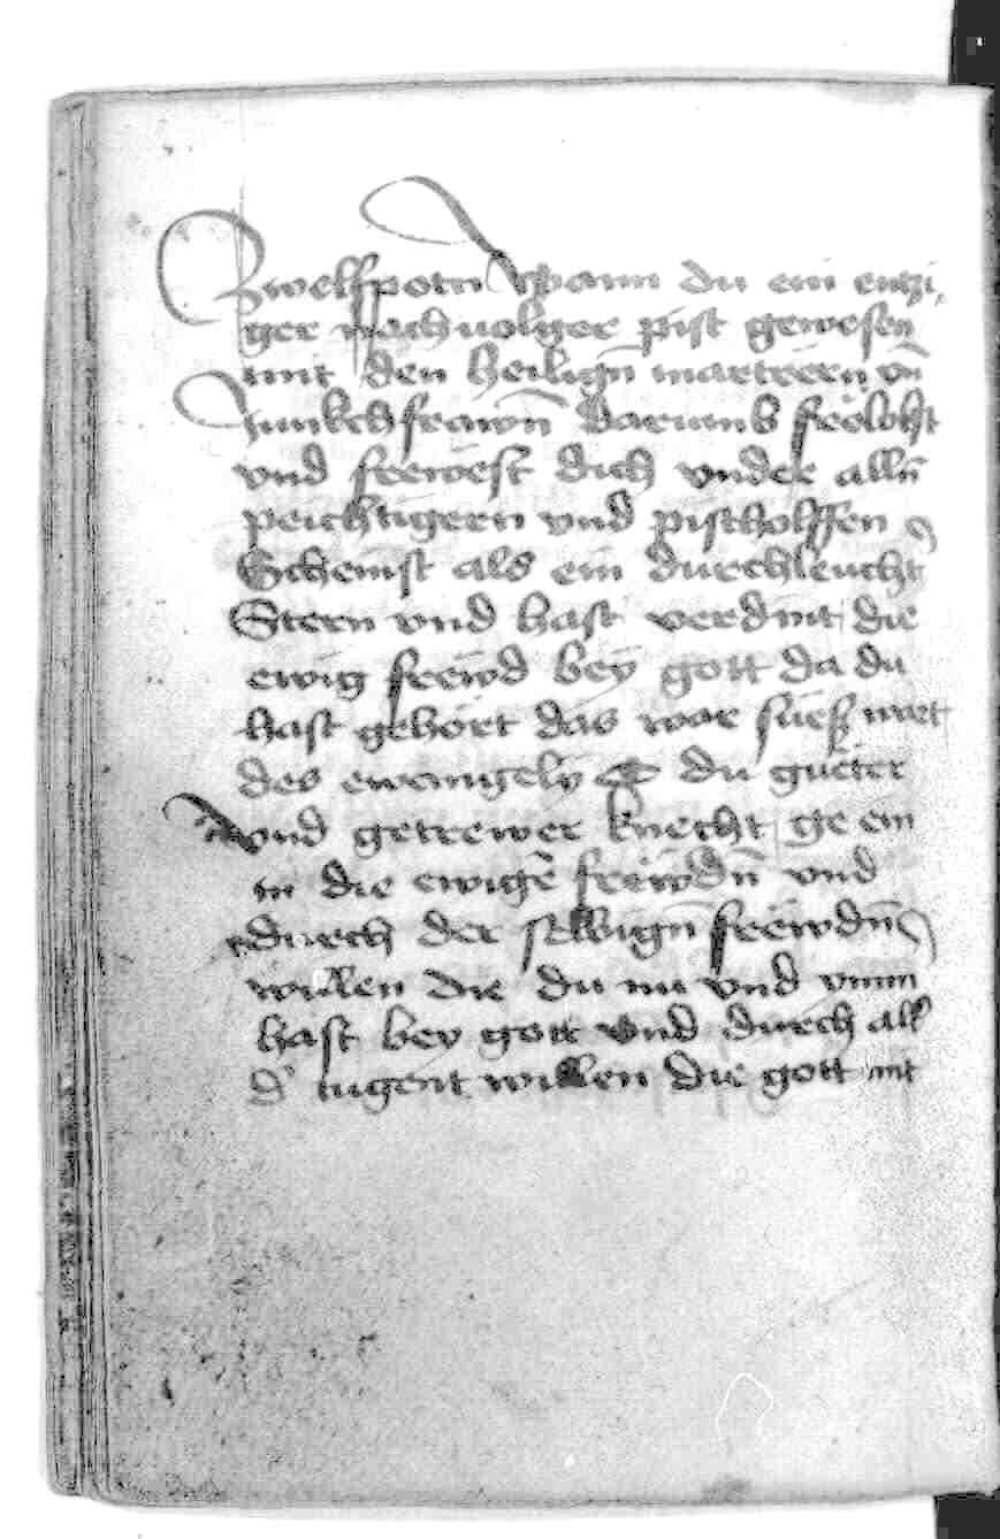 Zwelfpotn Wann du ein entzi
ger nachuolger pist gewesen
mit den heilign̄ martrern vn̄
Junkchfrawn̄ Darumb frölichst
vnd frewest dich vnder alln̄
peichtigern vnd pischolffen
Scheinst als ein durchleucht
Stern vnd hast verdint die
ewig frewd bey gott da du
hast gehört das war süess wart
des ewangely du gueter
vnd getrewer knecht ge ein
in die ewigē frewdn̄ vnd
durch der selbign̄ frewdn̄
willen die du nu vnd ymm
hast bey gott vnd durch all
d' tugent willen die gott mt